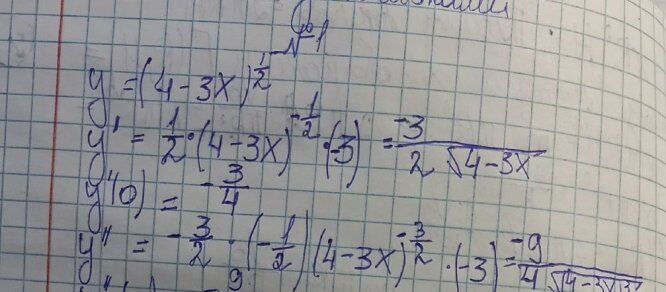 №1
y = (4-3x)^{\frac{1}{2}}
y' = \frac{1}{2} \cdot (4-3x)^{-\frac{1}{2}} \cdot (-3) = \frac{-3}{2\sqrt{4-3x}}
y'(0) = -\frac{3}{4}
y'' = -\frac{3}{2} \cdot (-\frac{1}{2}) (4-3x)^{-\frac{3}{2}} \cdot (-3) = \frac{-9}{4\sqrt{(4-3x)^3}}